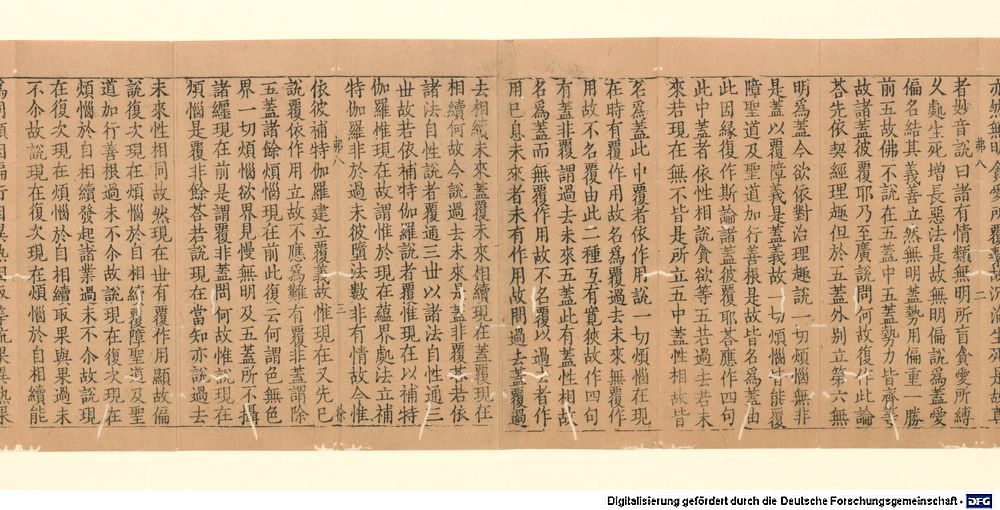 弗八 二
者妙音說曰諸有情類無明所盲貪愛所縛
久處生死增長惡法是故無明偏說為蓋愛
偏名結其義善立然無明蓋勢用偏重一勝
前五故佛不說在五蓋中五蓋勢力皆齊等
故諸蓋彼覆耶乃至廣說問何故復作此論
荅先依契經理趣但於五蓋外別立第六無
明為蓋今欲依對治理趣說一切煩惱無非
是蓋以覆障義是蓋義故一切煩惱皆能覆
障聖道及聖道加行善根是故皆名為蓋由
此因緣復作斯論諸蓋彼覆耶荅應作四句
此中蓋者依性相說貪欲等五若過去若未
來若現在無不皆是所立五中蓋性相故皆
名為蓋此中覆者依作用說一切煩惱在現
在時有覆作用故名為覆過去未來無覆作
用故不名覆由此二種互有寬狹故作四句
有蓋非覆謂過去未來五蓋此有蓋性相故
名為蓋而無覆作用故不名覆以過去者作
用已息未來者未有作用故問過去蓋覆過
去相續未來蓋覆未來相續現在蓋覆現在
相續何故今說過去未來是蓋非覆荅若依
諸法自性說者覆通三世以諸法自性通三
世故若依補特伽羅說者覆惟現在以補特
伽羅惟現在故謂惟於現在蘊界處法立補
特伽羅非於過未彼墮法數非有情故今惟
弗八 三 徐
依彼補特伽羅建立覆義故惟現在又先已
說覆依作用立故不應為難有覆非蓋謂除
五蓋諸餘煩惱現在前此復云何謂色無色
界一切煩惱欲界見慢無明及五蓋所不攝
諸纏現在前是謂覆非蓋問何故惟說現在
煩惱是覆非餘荅若說現在當知亦說過去
未來性相同故然現在世有覆作用顯故偏
說復次現在煩惱於自相續覆障聖道及聖
道加行善根過未不尒故說現在復次現在
煩惱於自相續發起諸業過未不尒故說現
在復次現在煩惱於自相續取果與果過未
不尒故說現在復次現在煩惱於自相續能
Digitalisierung gefördert durch die Deutsche Forschungsgemeinschaft - DFG